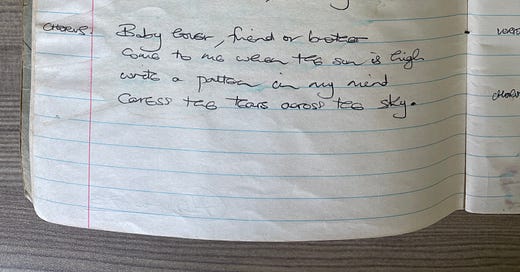 CHORUS. Baby lover, friend or brother
Come to me when the sun is high
write a pattern in my mind
caress the tears across the sky.